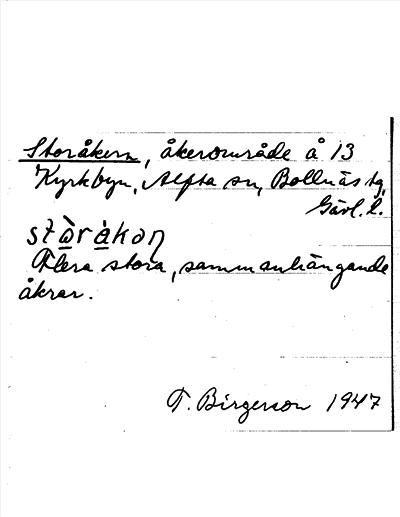 Storåkern, åkerområde å 13
Kyrkbyn, Alfta sn, Bollnäs tg,
Gävl. l.
stὼràkoꞑ
Flera stora, sammanhängande
åkrar.
T. Birgerson 1947